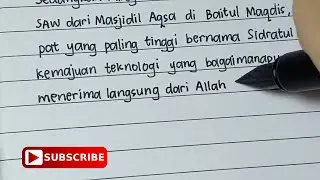 SAW dari Masjidil Aqsa di Baitul Maqdis,
pat yang paling tinggi bernama Sidratul
kemajuan teknologi yang bagaimanapu
menerima langsung dari Allah
SUBSCRIBE